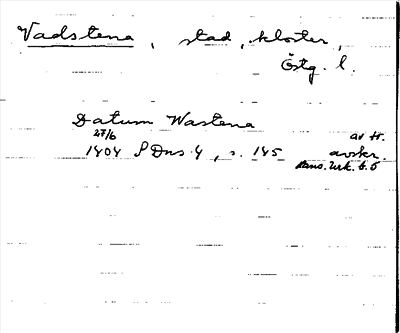 Vadstena, stad, kloster,
Östg. l.
Datum Wastena
27/6 av tr.
1404 SDns 1, s. 145 avskr.
Urk. t. S